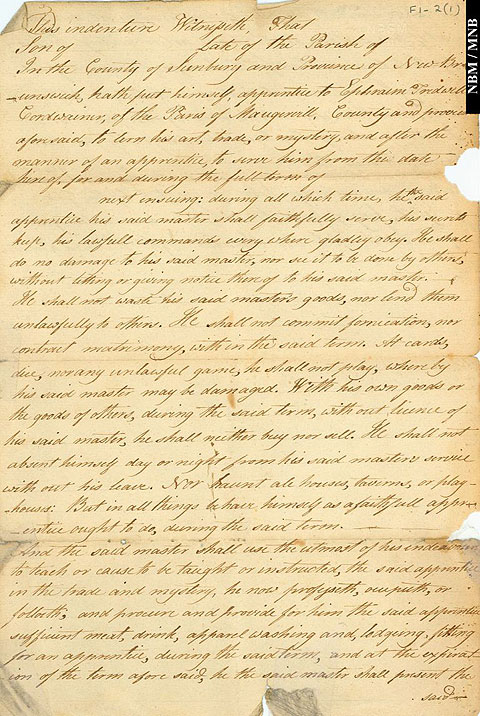 F1-2(1)
NBM / MNB
This indenture Witnesseth, That
Son of Late of the Parish of
In the County of Sunbury and Province of New Br-
unswick, hath put himself, apprentice to Ephraim Tredwell
Cordwainer, of the Paris of Maugervill, County and provice
aforsaid, to lern his art, trade, or mystery, and after the
manner of an apprentice, to serve him from the date
hereof, for and during the full term of
next ensuing: during all which time, he the said
apprentice his said master shall faithfully serve, his secrets
kep, his lawfull commands every where gladley obey. He shall
do no damage to his said master, nor see it to be done by others,
without leting or giving notice therof to his said master.
He shall not waste his said master's goods, nor lend them
unlawfully to others. He shall not commit fornication, nor
contract matrimony, with in the said term. At cards,
dice, nor any unlawful game, he shall not play, where by
his said master may be damaged. With his own goods or
the goods of others, during the said term, with out licence of
his said master, he shall neither buy nor sell. He shall not
absent himself day or night from his said master's service
with out his leave. Nor haunt ale houses, taverns, or play-
houses: But in all things behave himself as a faithfull appr-
entice ought to do, during the said term.
And the said master shall use the utmost of his endeavour
to teach or cause to be taught or instructed, the said apprentice
in the trade and mystery, he now professeth, occupieth, or
followeth, and procure and provide for him the said apprentice
sufficient meet, drink, apparel washing and, lodging, fitting
for an apprentice, during the said term, and at the expirat-
ion of the term afore said, he the said master shall present the
said